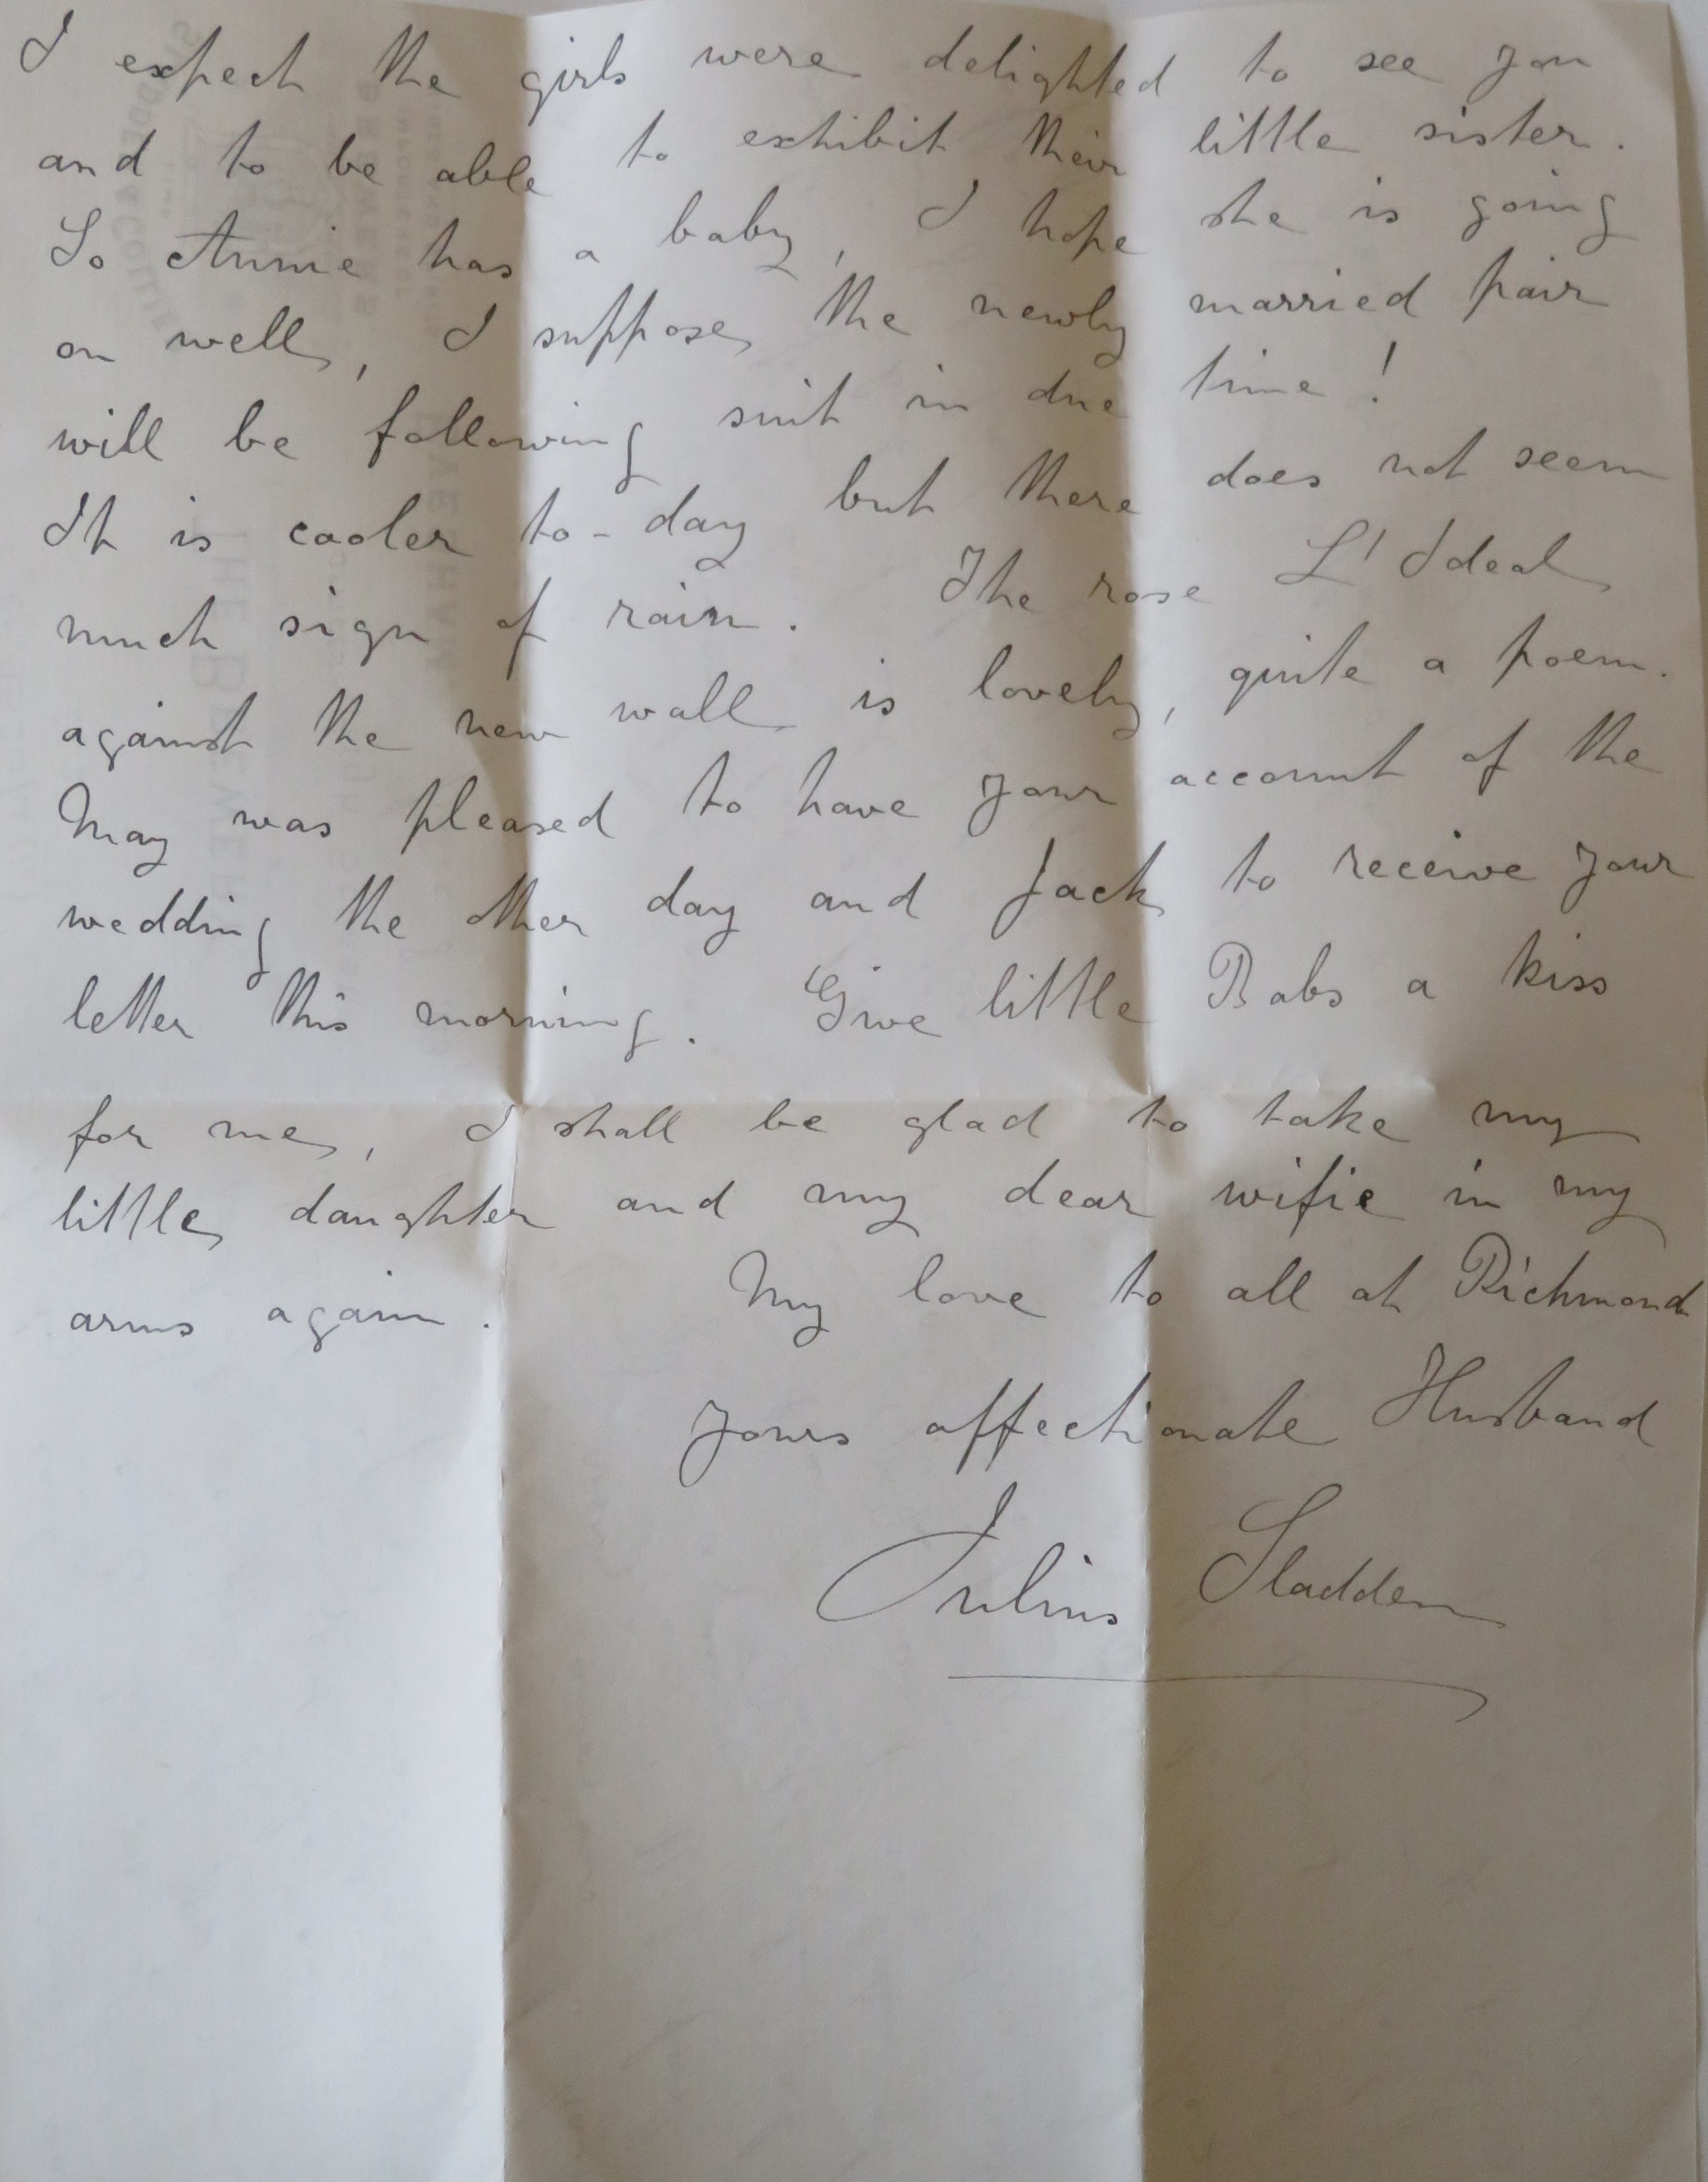 I expect the girls were delighted to see you
and to be able to exhibit their little sister.
So Annie has a baby, I hope she is going
on well, I suppose the newly married pair
will be following suit in due time!
It is cooler to-day but there does not seem
much sign of rain. The rose L'Ideal
against the new wall is lovely, quite a poem.
May was pleased to have your account of the
wedding the other day and Jack to receive your
letter this morning. Give little Babs a kiss
for me, I shall be glad to take my
little daughter and my dear wifie in my
arms again. My love to all at Richmond
Yours affectionate Husband
Julius Sladden